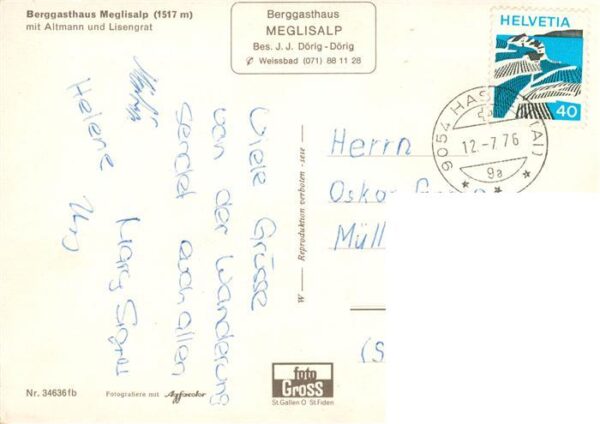 Berggasthaus Meglisalp (1517 m)
mit Altmann und Lisengrat
Berggasthaus
MEGLISALP
Bes. J. J. Dörig-Dörig
✆ Weissbad (071) 88 11 28
HELVETIA
40
9054 HAS (AI)
12.-7.76
9a
Viele Grüsse
von der Wanderung
sendet auch allen
Helene
Herrn
Oskar
Müll
(S
W — Reproduktion verboten - sese —
foto
Gross
St.Gallen O St.Fiden
Nr. 34636fb
Fotografiere mit Agfacolor